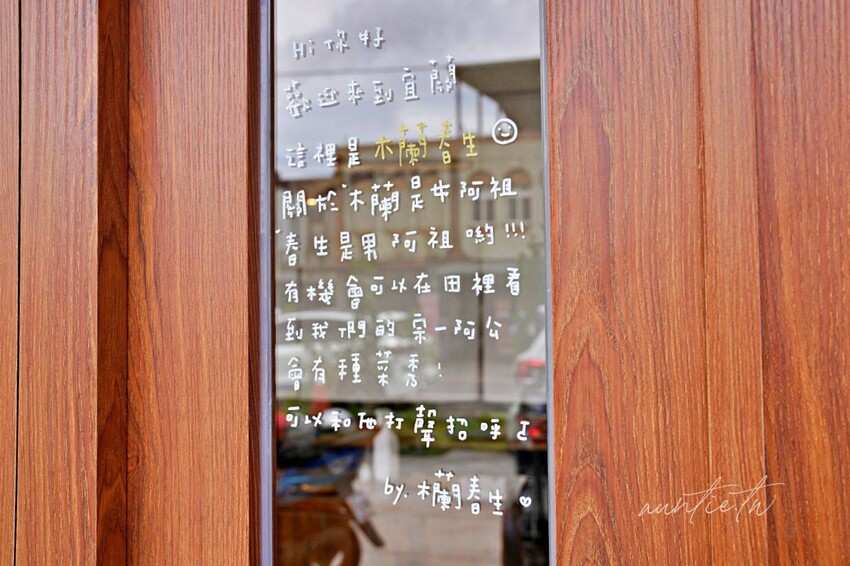 Hi 你好
歡迎來到宜蘭
這裡是木蘭春生
關於木蘭是女阿祖
春生是男阿祖喲!!!
有機會可以在田裡看
到我們的宗一阿公
會有種菜秀!
可以和他打聲招呼
by.木蘭春生♡
auntie.tw